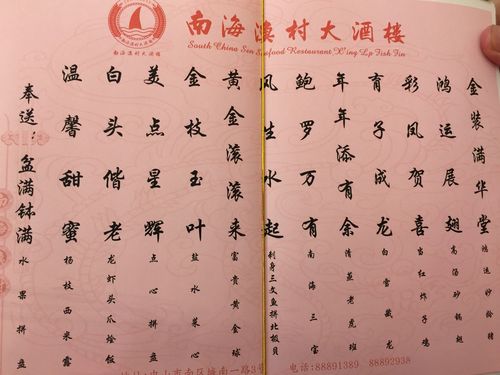 南海渔村大酒楼
South China Sea Seafood Restaurant X'ing Lp Fish Fin
南海渔村大酒楼
金装满华堂
鸿运展翅
高汤砂锅翅
彩凤贺喜
当红炸子鸡
育子成龙
白雪藏龙
年年添有余
清蒸老虎班
鲍罗万有
南海三宝
风生水起
刺身三文鱼拼北极贝
黄金滚滚来
富贵黄金球
金枝玉叶
盐水菜心
美点星辉
点心拼盘
白头偕老
龙虾头爪烩饭
温馨甜蜜
杨枝西米露
奉送:盆满钵满
水果拼盘
中山市南区城南一路3号
电话:88891389 88892938